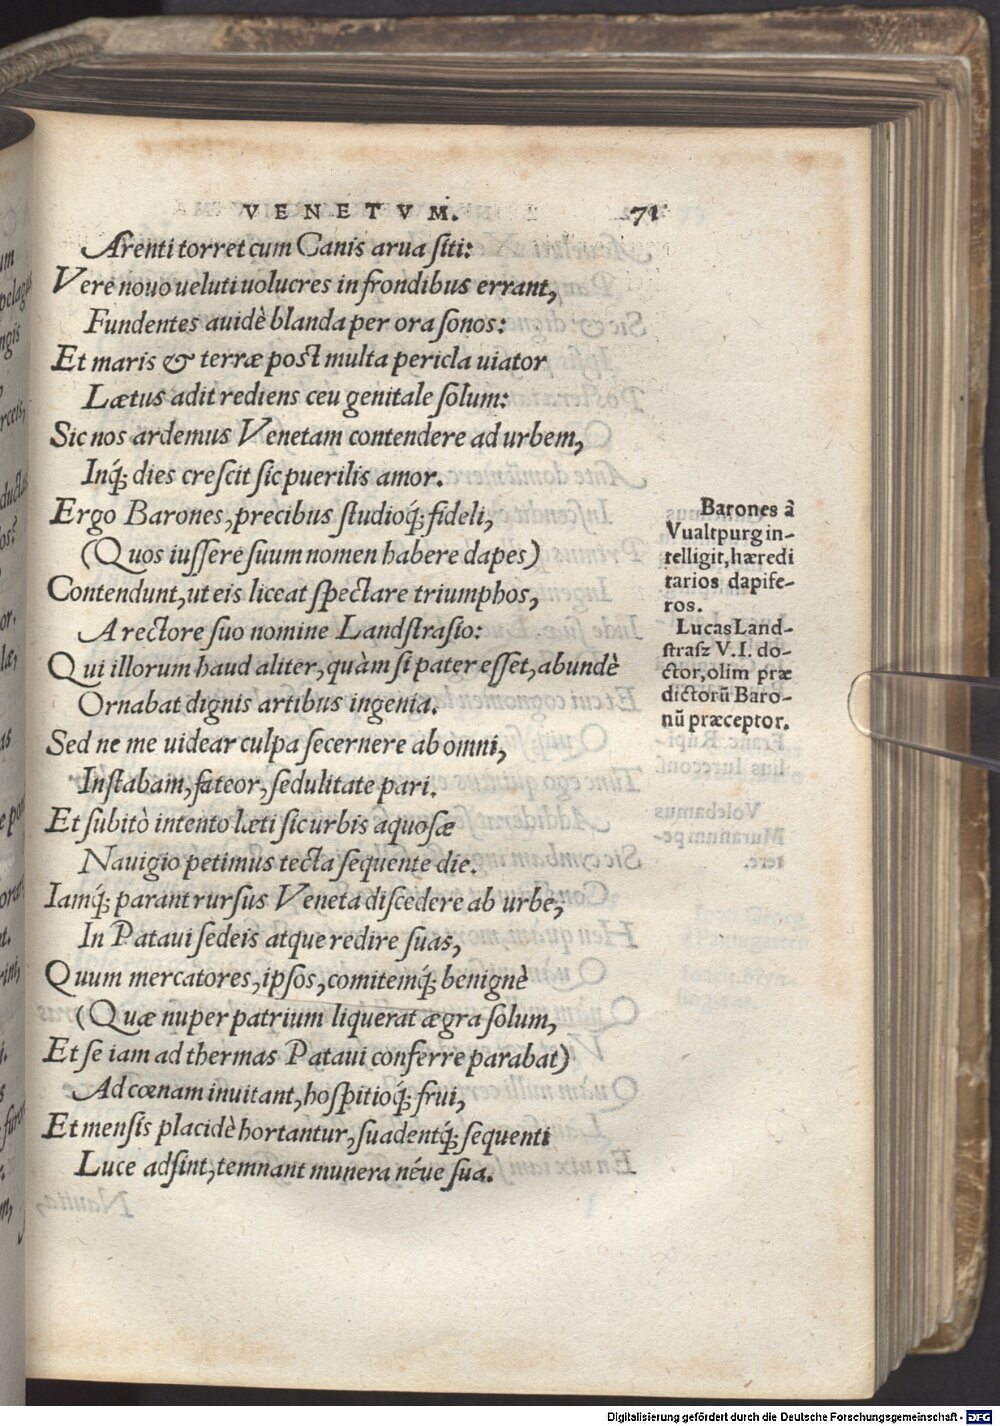 VENETVM. 71
Arenti torret cum Canis arua siti:
Vere nouo ueluti uolucres in frondibus errant,
Fundentes auidè blanda per ora sonos:
Et maris & terræ post multa pericla uiator
Lætus adit rediens ceu genitale solum:
Sic nos ardemus Venetam contendere ad urbem,
Inq́; dies crescit sic puerilis amor.
Ergo Barones, precibus studioq́; fideli,
(Quos iussere suum nomen habere dapes)
Contendunt, ut eis liceat spectare triumphos,
A rectore suo nomine Landstrasio:
Qui illorum haud aliter, quàm si pater esset, abundè
Ornabat dignis artibus ingenia.
Sed ne me uidear culpa secernere ab omni,
Instabam, fateor, sedulitate pari.
Et subitò intento læti sic urbis aquosæ
Nauigio petimus tecta sequente die.
Iamq́; parant rursus Veneta discedere ab urbe,
In Pataui sedeis atque redire suas,
Quum mercatores, ipsos, comitemq́; benignè
(Quæ nuper patrium liquerat ægra solum,
Et se iam ad thermas Pataui conferre parabat)
Ad cœnam inuitant, hospitioq́; frui,
Et mensis placidè hortantur, suadentq́; sequenti
Luce adsint, temnant munera néue sua.
Barones â
Vualtpurg in-
telligit, hæredi
tarios dapife-
ros.
Lucas Land-
strasz V. I. do-
ctor, olim præ
dictorũ Baro-
nũ præceptor.
Digitalisierung gefördert durch die Deutsche Forschungsgemeinschaft - DFG